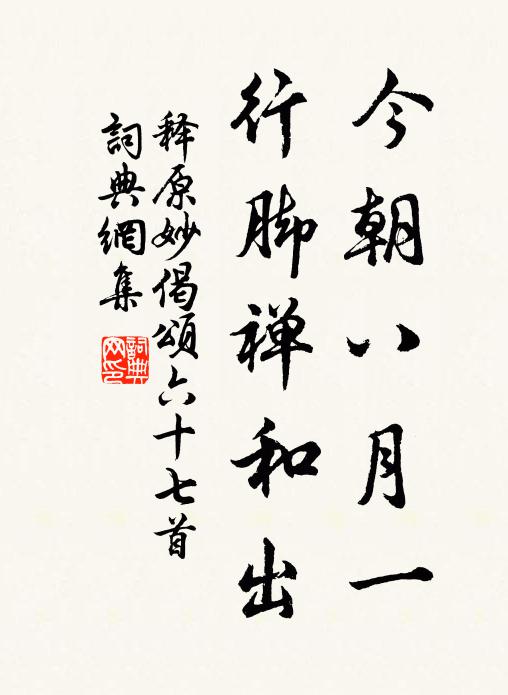 今朝八月一
行脚禅和出
释原妙偈頌六十七首
詞典網集
詞典網印